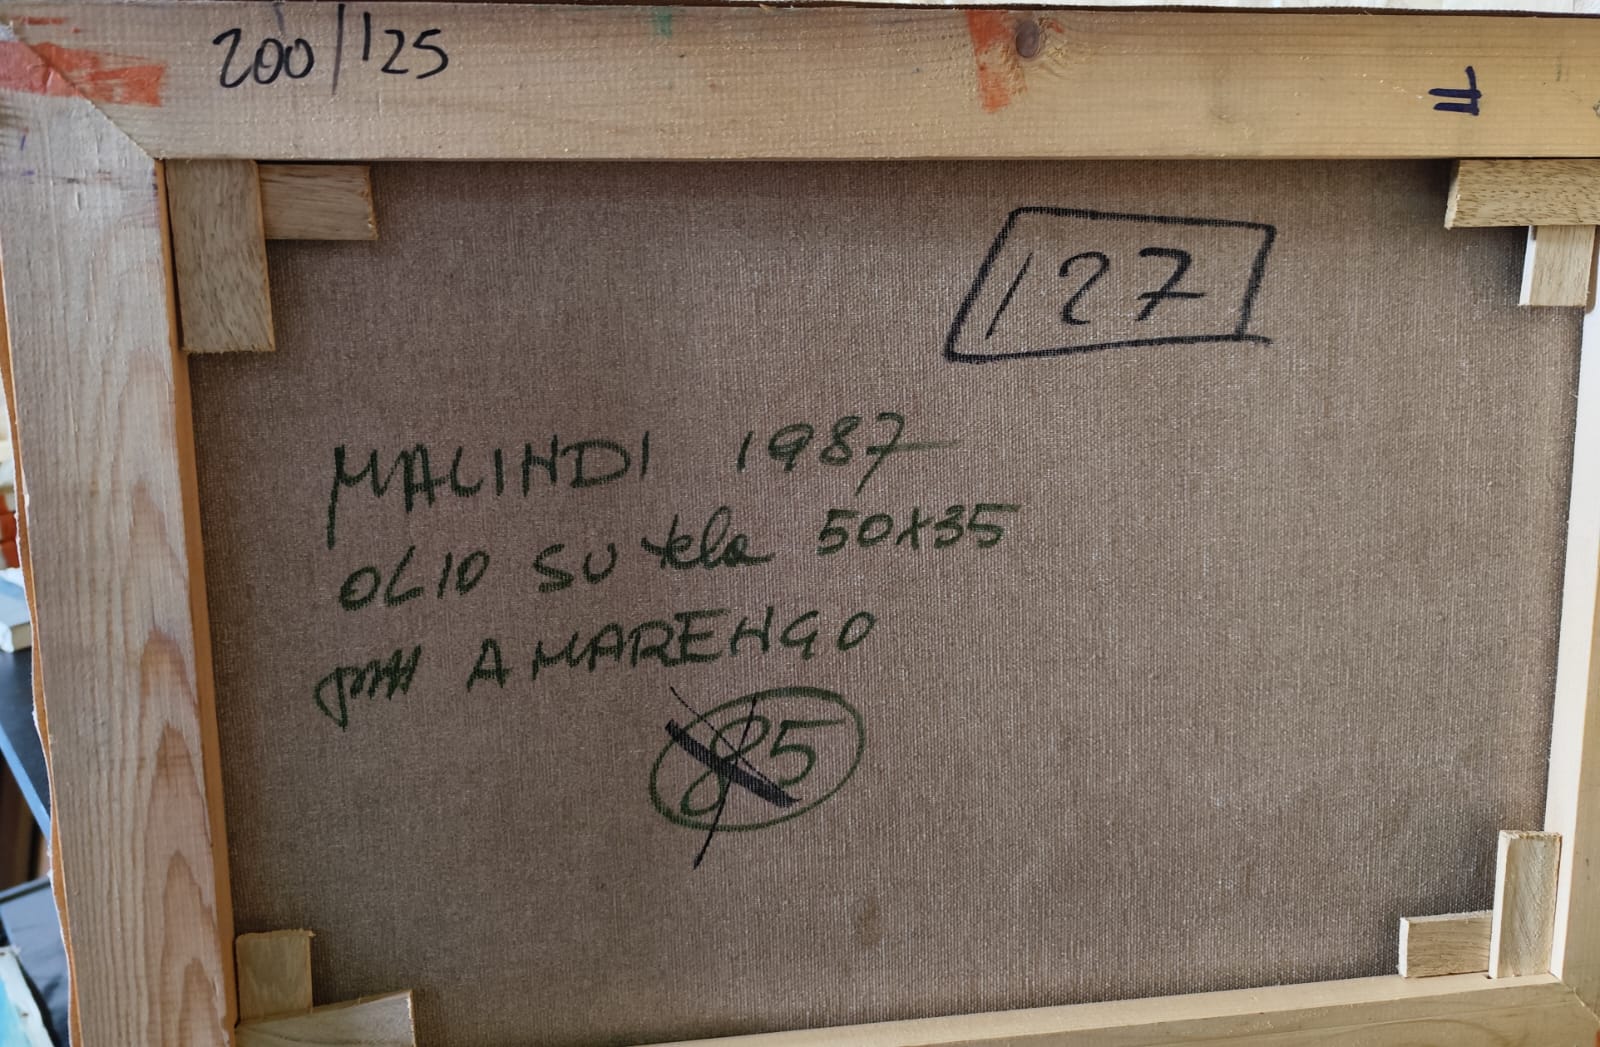 200/125
127
MALINDI 1987
OLIO SU tela 50x35
A MARENGO
85